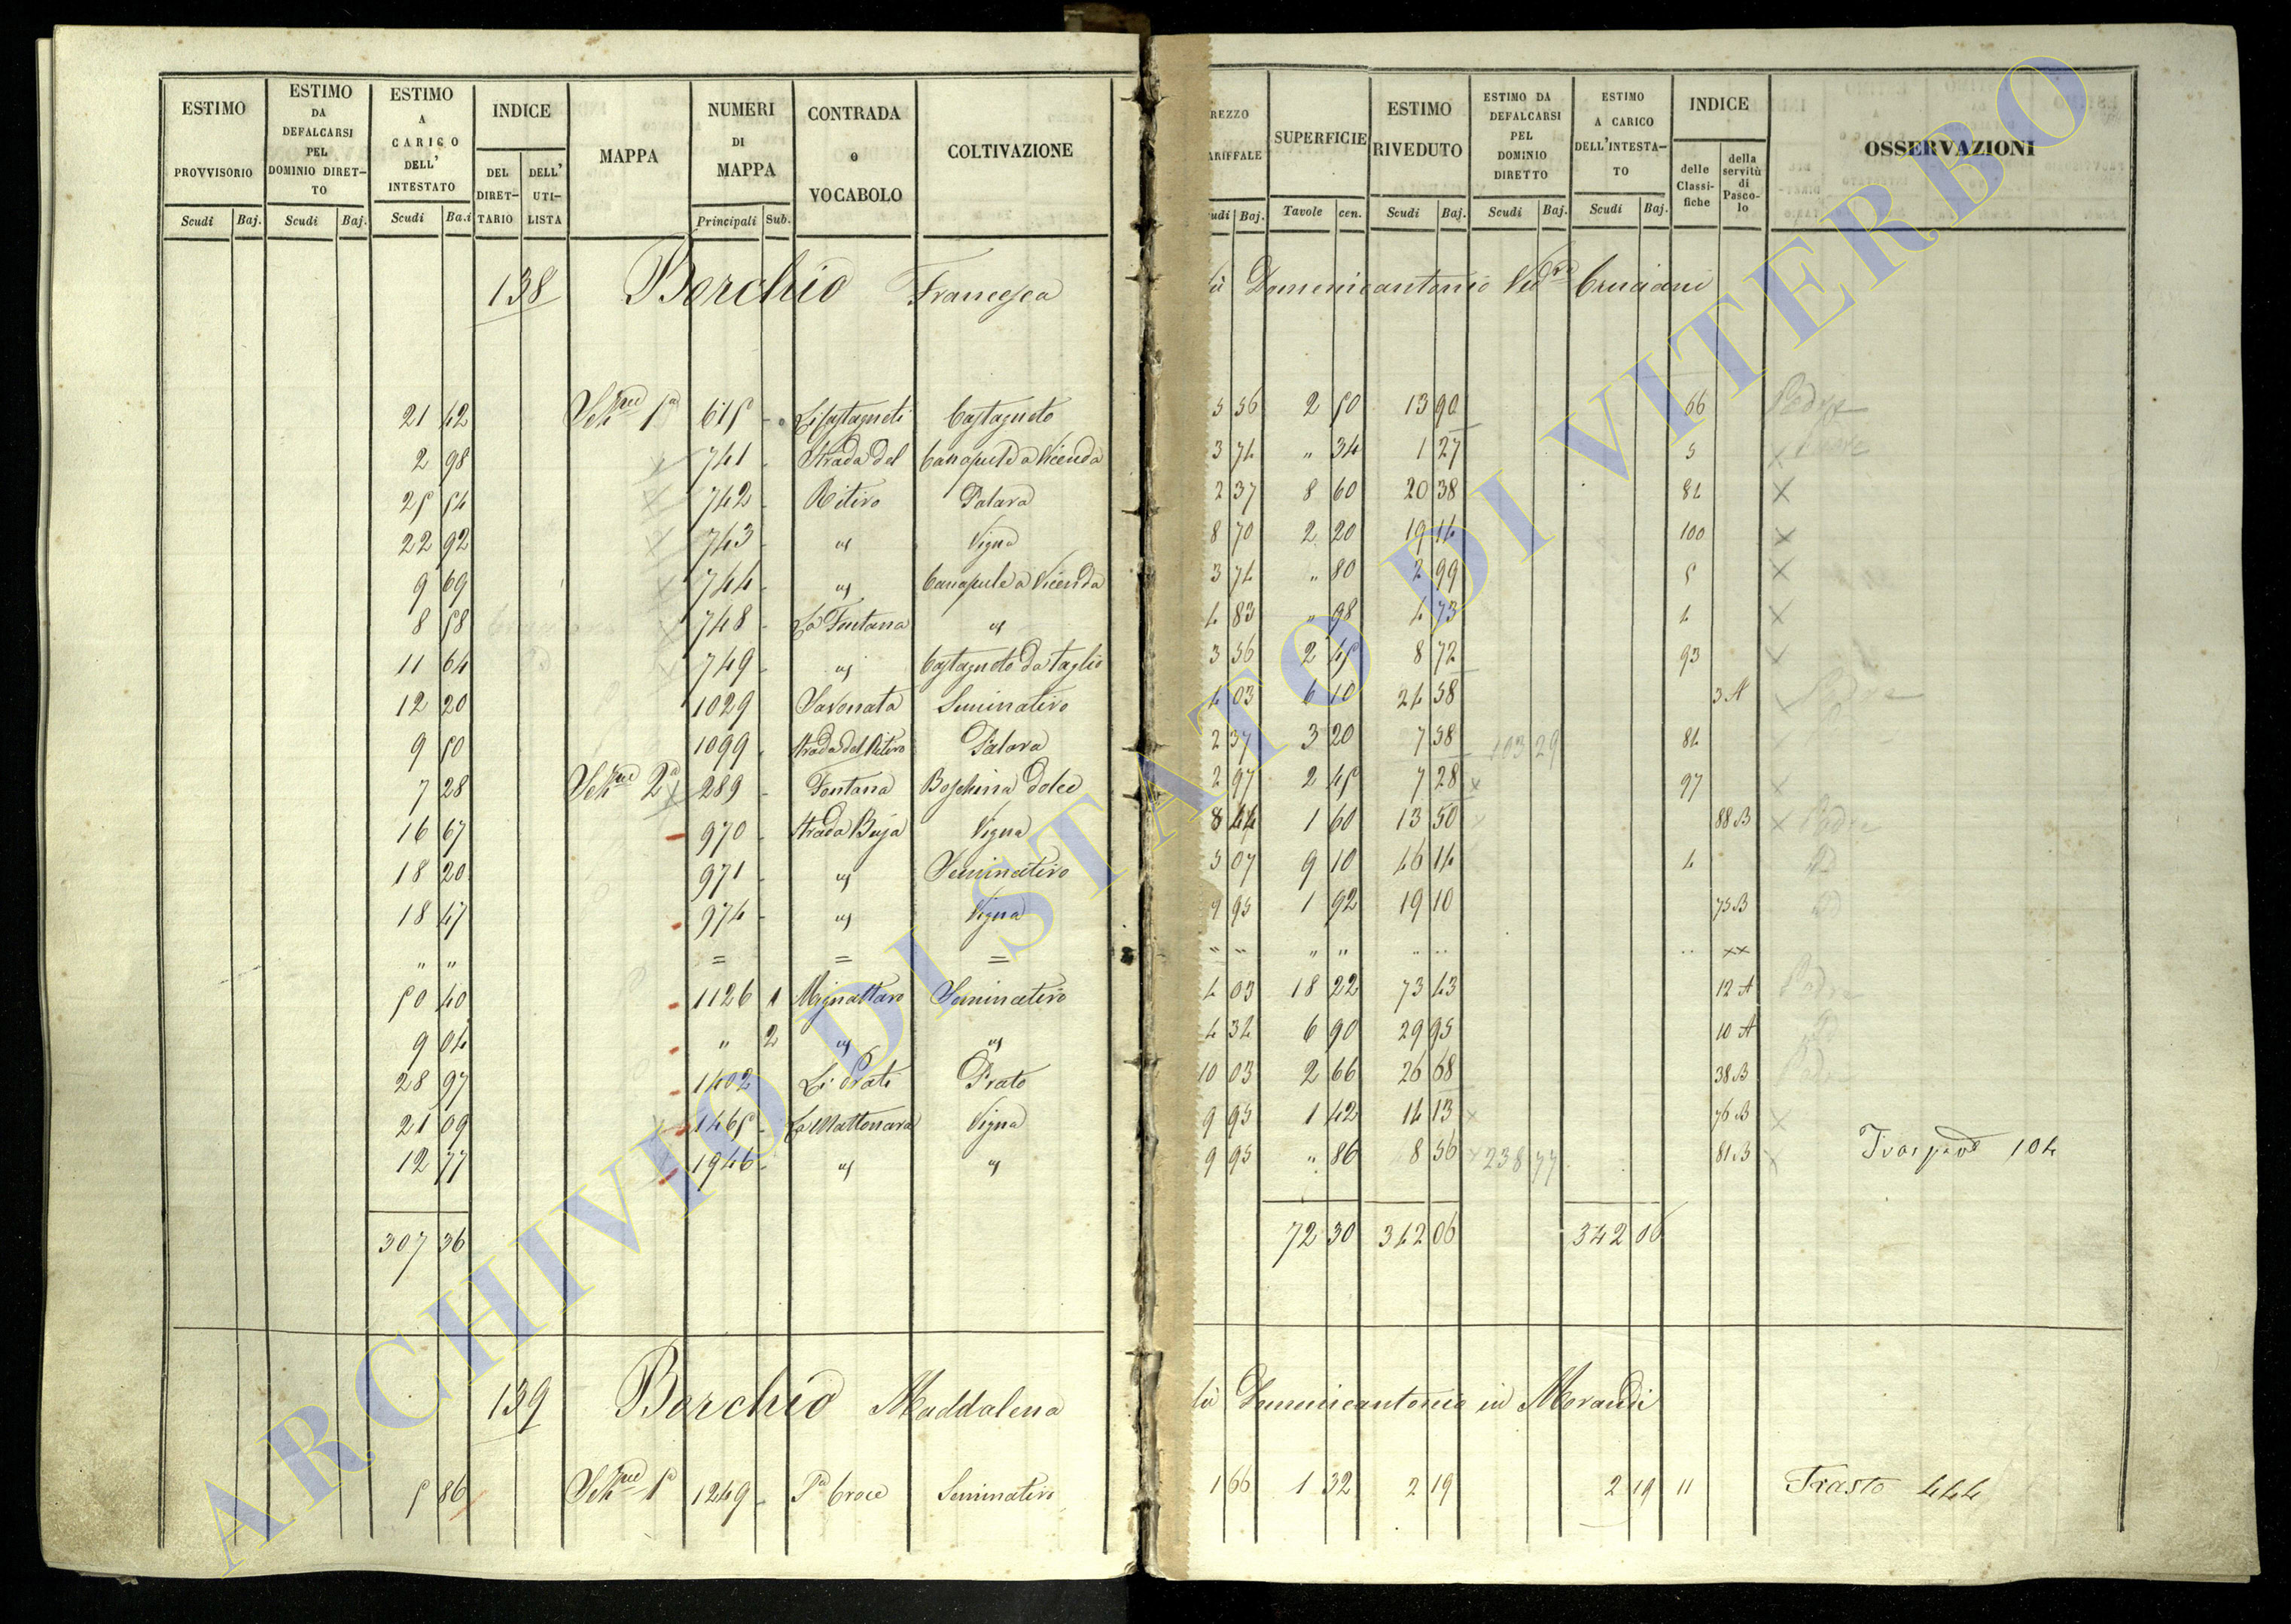 ESTIMO PROVVISORIO Scudi Baj.
ESTIMO DA DEFALCARSI PEL DOMINIO DIRET-TO Scudi Baj.
ESTIMO A CARICO DELL' INTESTATO Scudi Ba.i
INDICE DEL DIRET-TARIO DELL' UTI-LISTA
MAPPA
NUMERI DI MAPPA Principali Sub.
CONTRADA o VOCABOLO
COLTIVAZIONE
REZZO ARIFFALE udi Baj.
SUPERFICIE Tavole cen.
ESTIMO RIVEDUTO Scudi Baj.
ESTIMO DA DEFALCARSI PEL DOMINIO DIRETTO Scudi Baj.
ESTIMO A CARICO DELL'INTESTA-TO Scudi Baj.
INDICE delle Classi-fiche della servitù di Pasco-lo
OSSERVAZIONI
138 Borchio Francesca fù Domenicantonio Ved.va Cruciani
21 42 Sez.ne 1a 615 - Li Castagneti Castagneto 5 56 2 50 13 90 66 Padre
2 98 741 - Strada del Canapule a Vicenda 3 74 " 34 1 27 5 x Padre
25 54 742 - Ritiro Palara 2 37 8 60 20 38 84 x
22 92 743 - " Vigna 8 70 2 20 19 14 100 x
9 69 744 - " Canapule a Vicenda 3 74 " 80 2 99 5 x
8 58 748 - La Fontana " 4 83 " 98 4 73 4 x
11 64 749 - " Castagneto da taglio 3 56 2 45 8 72 93 x
12 20 1029 Savonata Seminativo 4 03 6 10 24 58 3 A x Padre
9 50 1099 - Strada del Ritiro Palara 2 37 3 20 7 58 103 29 84
7 28 Sez.ne 2a x 289 - Fontana Boschina Dolce 2 97 2 45 7 28 x 97 x
16 67 970 - Strada Buja Vigna 8 44 1 60 13 50 88 B x Padre
18 20 971 - " Seminativo 5 07 9 10 46 14 4
18 47 974 - " Vigna 9 95 1 92 19 10 75 B
" " = = = " " " " " " " xx
50 40 1126 1 Mignattaro Seminativo 4 03 18 22 73 43 12 A Padre
9 04 " 2 " " 4 34 6 90 29 95 10 A
28 97 1402 Li Prati Prato 10 03 2 66 26 68 38 B Padre
21 09 1465 - La Mattonara Vigna 9 95 1 42 14 13 x 76 B x
12 77 1946 - " " 9 95 " 86 8 56 x 238 77 81 B x 104
307 36 72 30 342 06 342 06
139 Borchio Maddalena fù Domenicantonio in Morandi
5 86 Sez.ne 1a 1249 - Pa Croce Seminativo 1 66 1 32 2 19 2 19 11 Trasto 444
ARCHIVIO DI STATO DI VITERBO